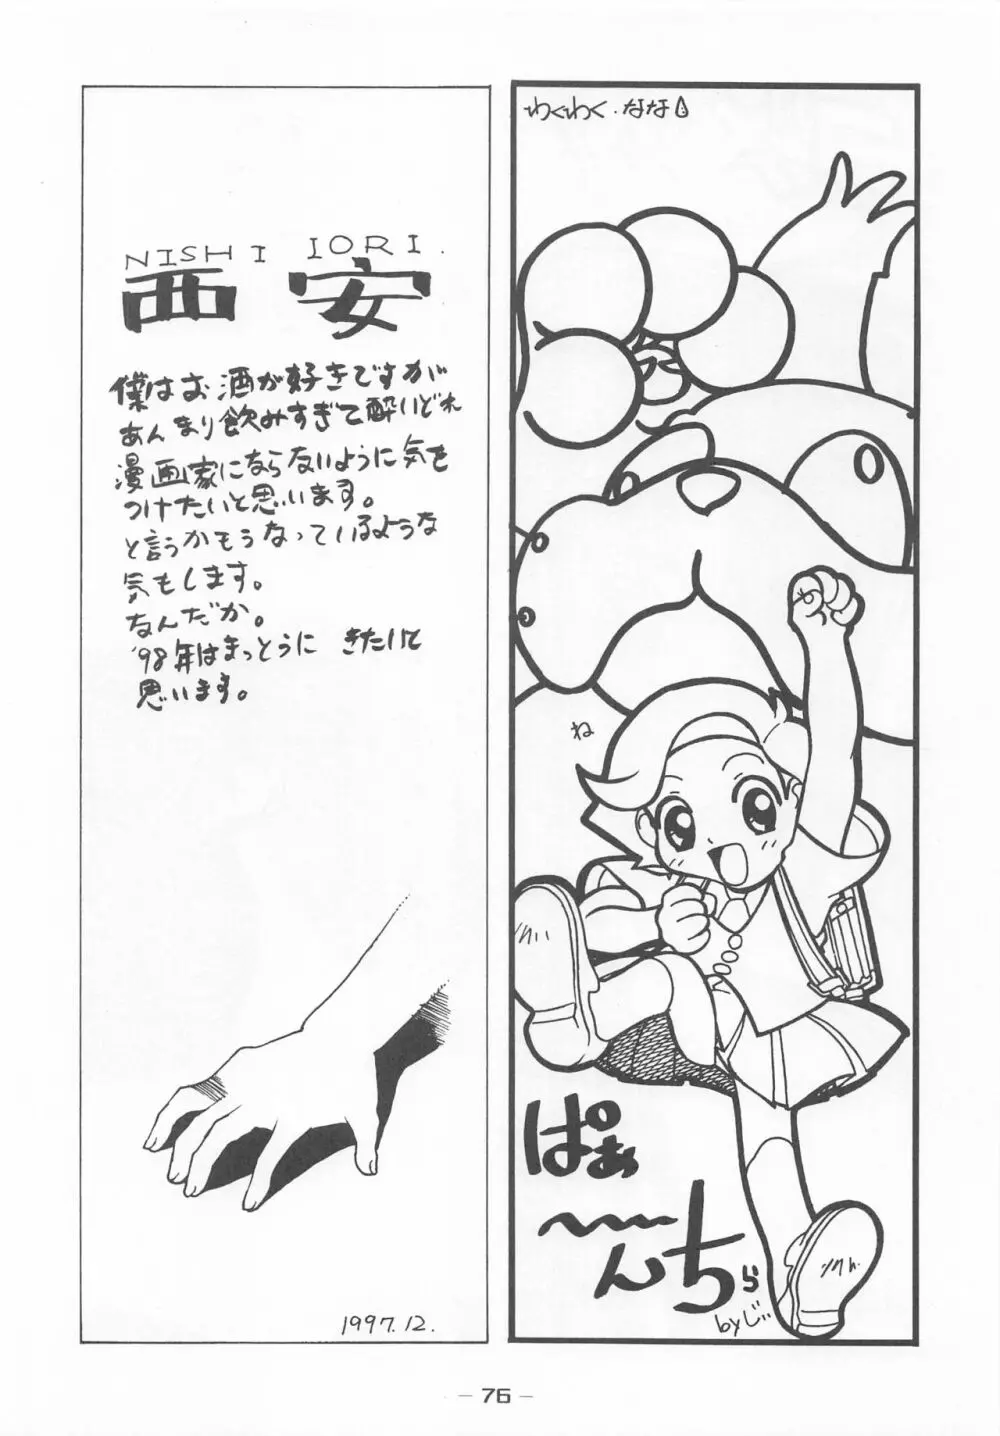 わくわく・なな
ね
ぱぁ
〜〜んちら
byじ
NISHI IORI.
西 安
僕はお酒が好きですが
あんまり飲みすぎて酔いどれ
漫画家にならないように気を
つけたいと思います。
と言うかもうなっているような
気もします。
なんだか。
'98年はまっとうに きたいと
思います。
1997.12.
- 76 -